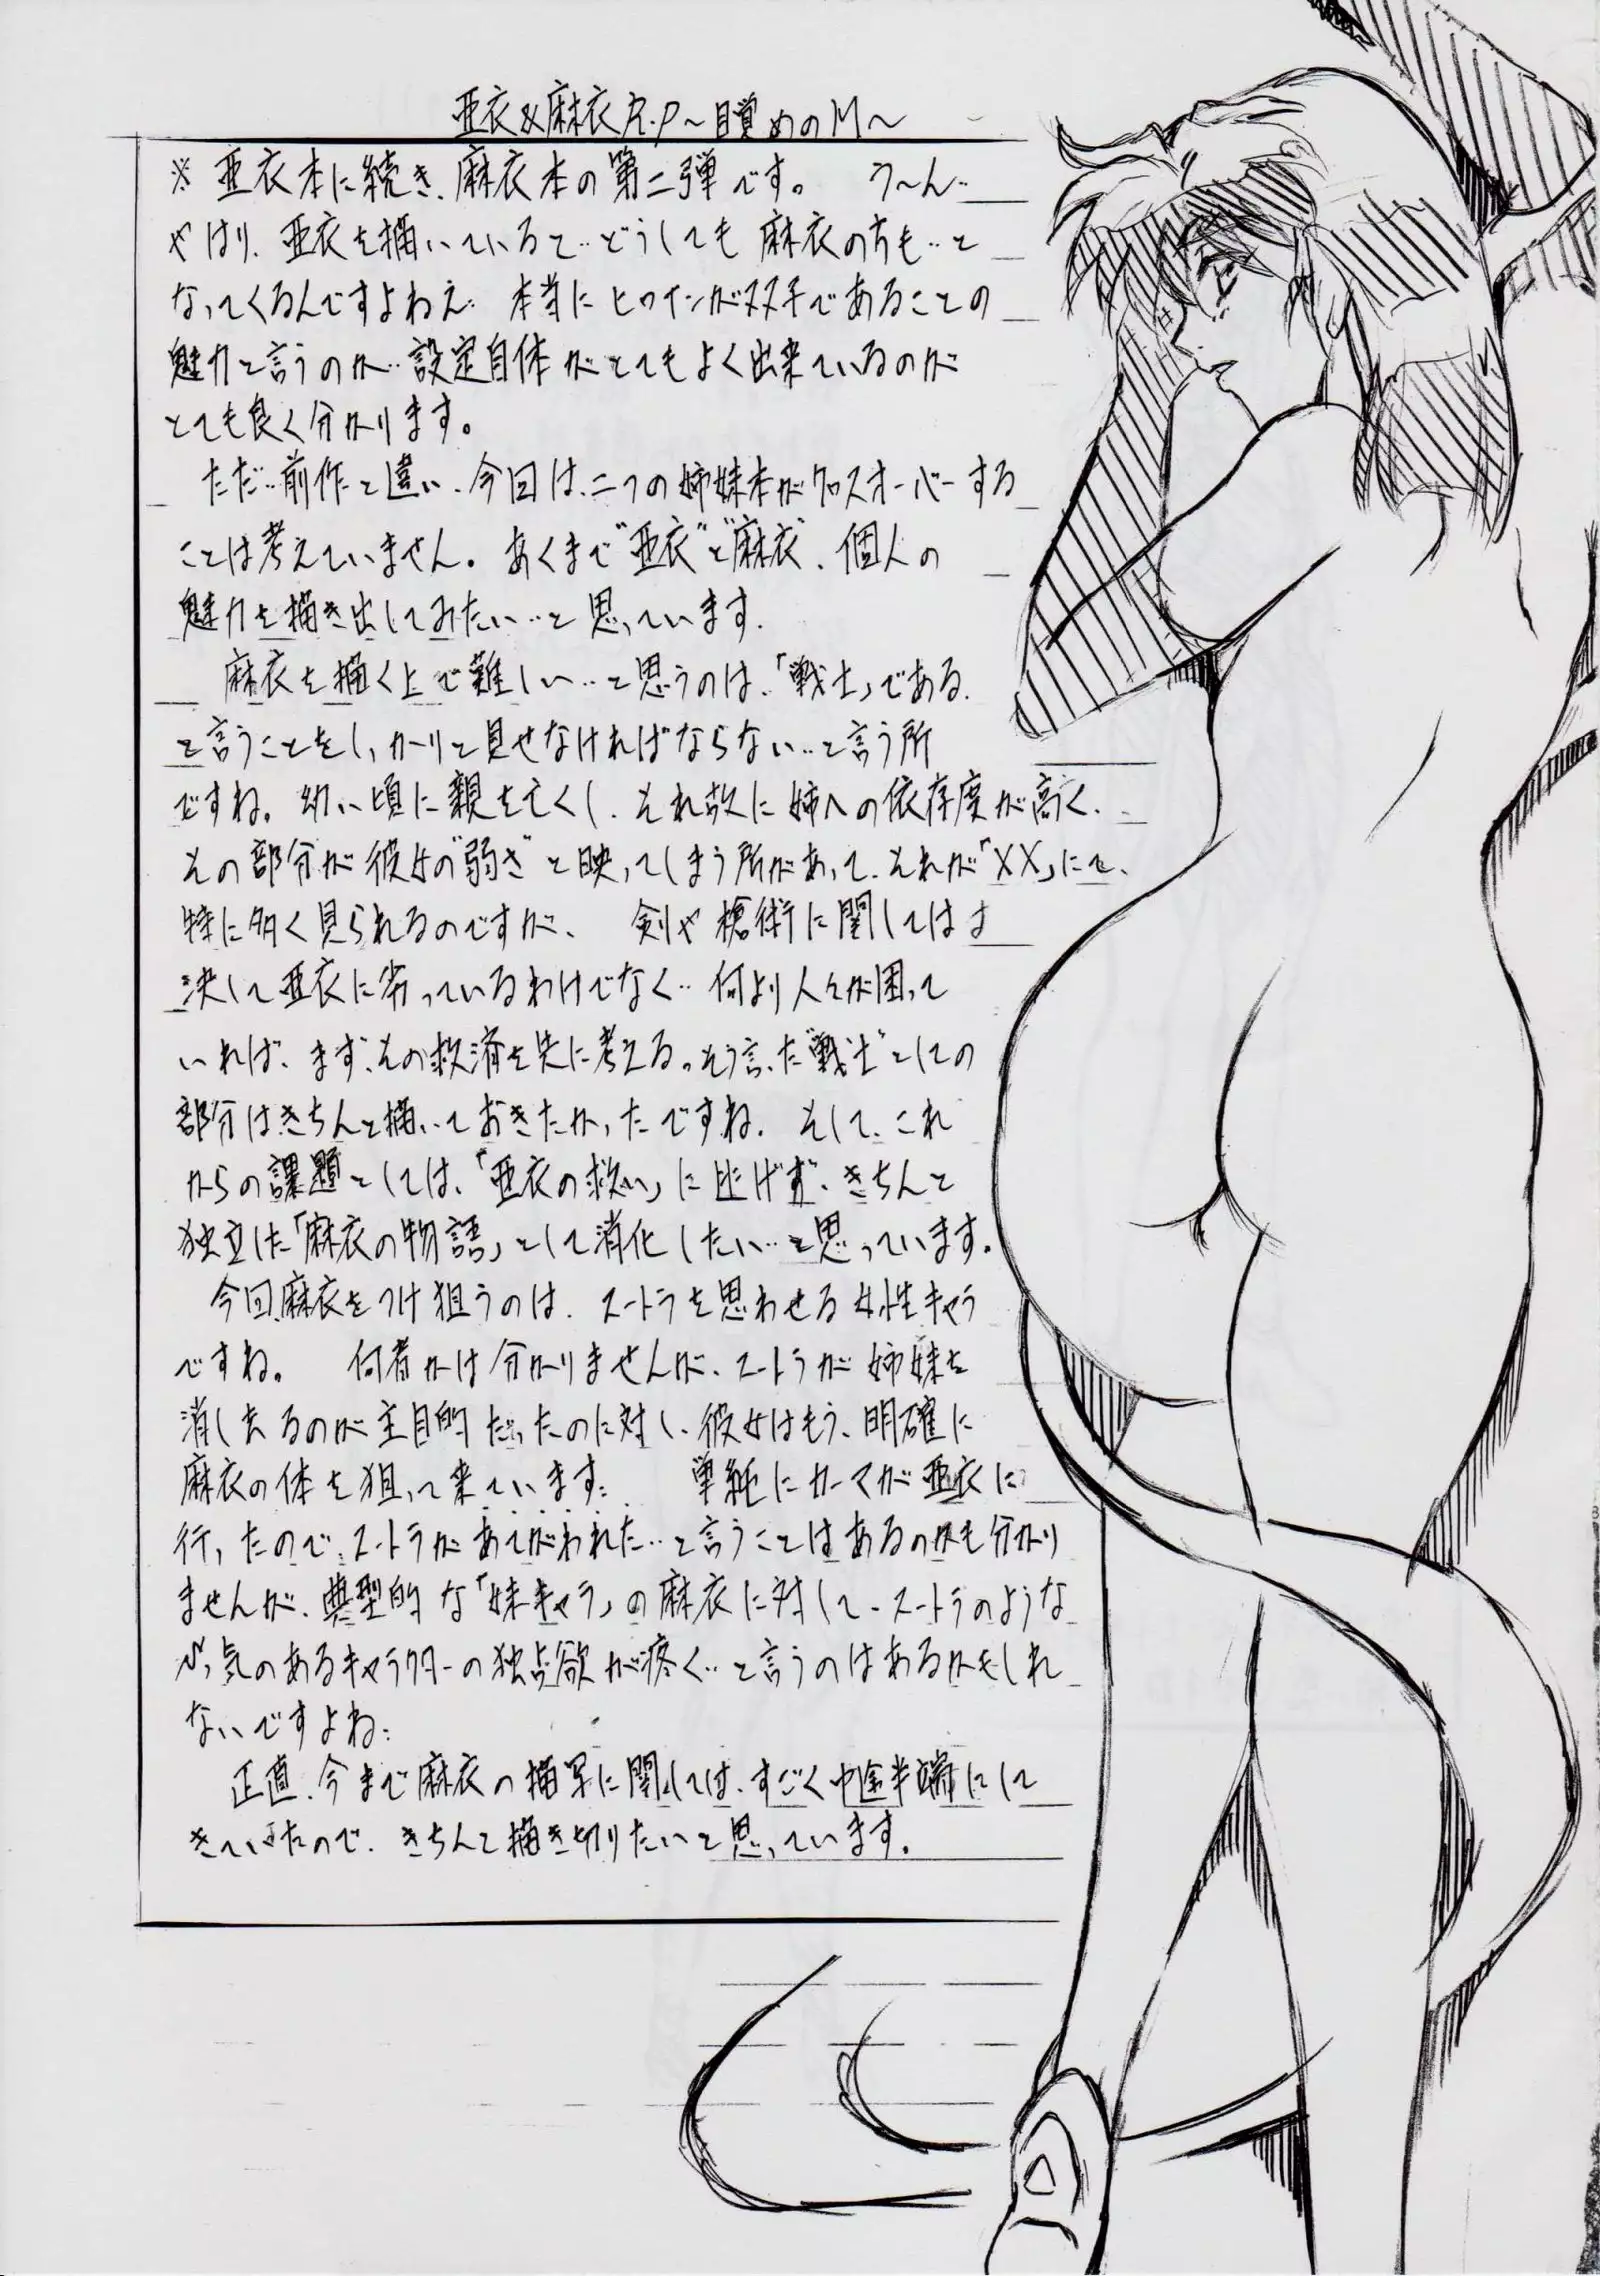 亜衣&麻衣R.P～目覚めのM～
※亜衣本に続き、麻衣本の第二弾です。 う～ん‥
やはり、亜衣を描いていると‥どうしても麻衣の方も‥と
なってくるんですよねえ‥ 本当にヒロインが双子であることの
魅力と言うのか‥設定自体がとてもよく出来ているのが
とても良く分かります。
ただ‥前作と違い、今回は、二つの姉妹本がクロスオーバーする
ことは考えていません。あくまで"亜衣"と"麻衣"、個人の
魅力を描き出してみたい‥と思っています。
麻衣を描く上で難しい‥と思うのは、「戦士」である、
と言うことをしっかりと見せなければならない‥と言う所
ですね。幼い頃に親を亡くし、それ故に姉への依存度が高く、
その部分が彼女の"弱さ"と映ってしまう所があって、それが「XX」にて、
特に多く見られるのですが、 剣や槍術に関しては
決して亜衣に劣っているわけでなく‥何より人々が困って
いれば、まず、その救済を先に考える。そう言った"戦士"としての
部分はきちんと描いておきたかったですね。そして、これ
からの課題としては、「亜衣の救い」に逃げず、きちんと
独立した「麻衣の物語」として消化したい‥と思っています。
今回麻衣をつけ狙うのは、スートラを思わせる女性キャラ
ですね。 何者かは分かりませんが、スートラが姉妹を
消し去るのが主目的だったのに対し、彼女はもう、明確に
麻衣の体を狙って来ています‥ 単純にカーマが亜衣に
行ったので、スートラがあてがわれた‥と言うことはあるのかも分かり
ませんが、典型的な「妹キャラ」の麻衣に対して、スートラのような
気のあるキャラクターの独占欲が疼く‥と言うのはあるかもしれ
ないですよね‥
正直、今まで麻衣の描写に関しては、すごく中途半端にして
きていたので、きちんと描き切りたいと思っています。